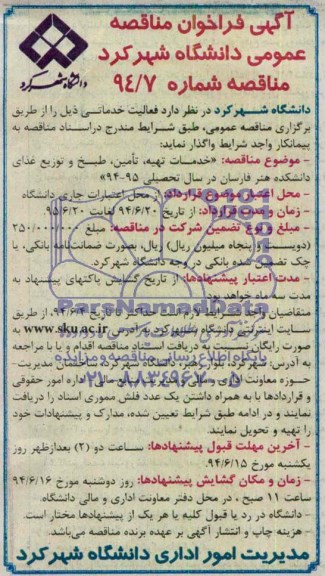 آگهی فراخوان مناقصه
عمومی دانشگاه شهرکرد
مناقصه شماره ۹۴/۷
دانشگاه شهرکرد
دانشگاه شهرکرد در نظر دارد فعالیت خدماتی ذیل را از طریق
برگزاری مناقصه عمومی، طبق شرایط مندرج دراسناد مناقصه به
پیمانکار واجد شرایط واگذار نماید:
- موضوع مناقصه: «خدمات تهیه، تأمین، طبخ و توزیع غذای
دانشکده هنر فارسان در سال تحصیلی ۹۵-۹۴»
- محل اعتبار موضوع قرارداد: از محل اعتبارات جاری دانشگاه
- زمان و مدت قرارداد: از تاریخ ۹۴/۶/۲۰ لغایت ۹۵/۶/۲۰
- مبلغ و نوع تضمین شرکت در مناقصه: مبلغ ۲۵۰/۰۰۰/۰۰۰
(دویست و پنجاه میلیون ریال) ریال، بصورت ضمانت‌نامه بانکی، یا
چک تضمین شده بانکی در وجه دانشگاه شهرکرد.
- مدت اعتبار پیشنهادها: از تاریخ گشایش پاکتهای پیشنهاد به
مدت سه ماه خواهد بود.
متقاضیان واجد شرایط لازم است حداکثر تا تاریخ از طریق
سایت اینترنتی دانشگاه شهرکرد به آدرس www.sku.ac.ir به
صورت رایگان نسبت به دریافت اسناد مناقصه اقدام و یا با مراجعه
به آدرس: شهرکرد، بلوار رهبر، دانشگاه شهرکرد، ساختمان مدیریت-
حوزه معاونت اداری و مالی اداره امور حقوقی
و قراردادها با به همراه داشتن یک عدد فلش مموری اسناد را دریافت
نمایند و در ادامه طبق شرایط تعیین شده، مدارک و پیشنهادات خود
را تهیه و تحویل نمایند.
- آخرین مهلت قبول پیشنهادها: ساعت دو (۲) بعدازظهر روز
یکشنبه مورخ ۹۴/۶/۱۵.
- زمان و مکان گشایش پیشنهادها: روز دوشنبه مورخ ۹۴/۶/۱۶
ساعت ۱۱ صبح ، در محل دفتر معاونت اداری و مالی دانشگاه.
- دانشگاه در رد یا قبول کلیه یا هر یک از پیشنهادها مختار است.
- هزینه چاپ و انتشار آگهی بر عهده برنده مناقصه می‌باشد.
مدیریت امور اداری دانشگاه شهرکرد
ParsNamadData
پایگاه اطلاع رسانی مناقصه و مزایده
۰۲۱-۸۸۳۴۹۶۷۰-۵